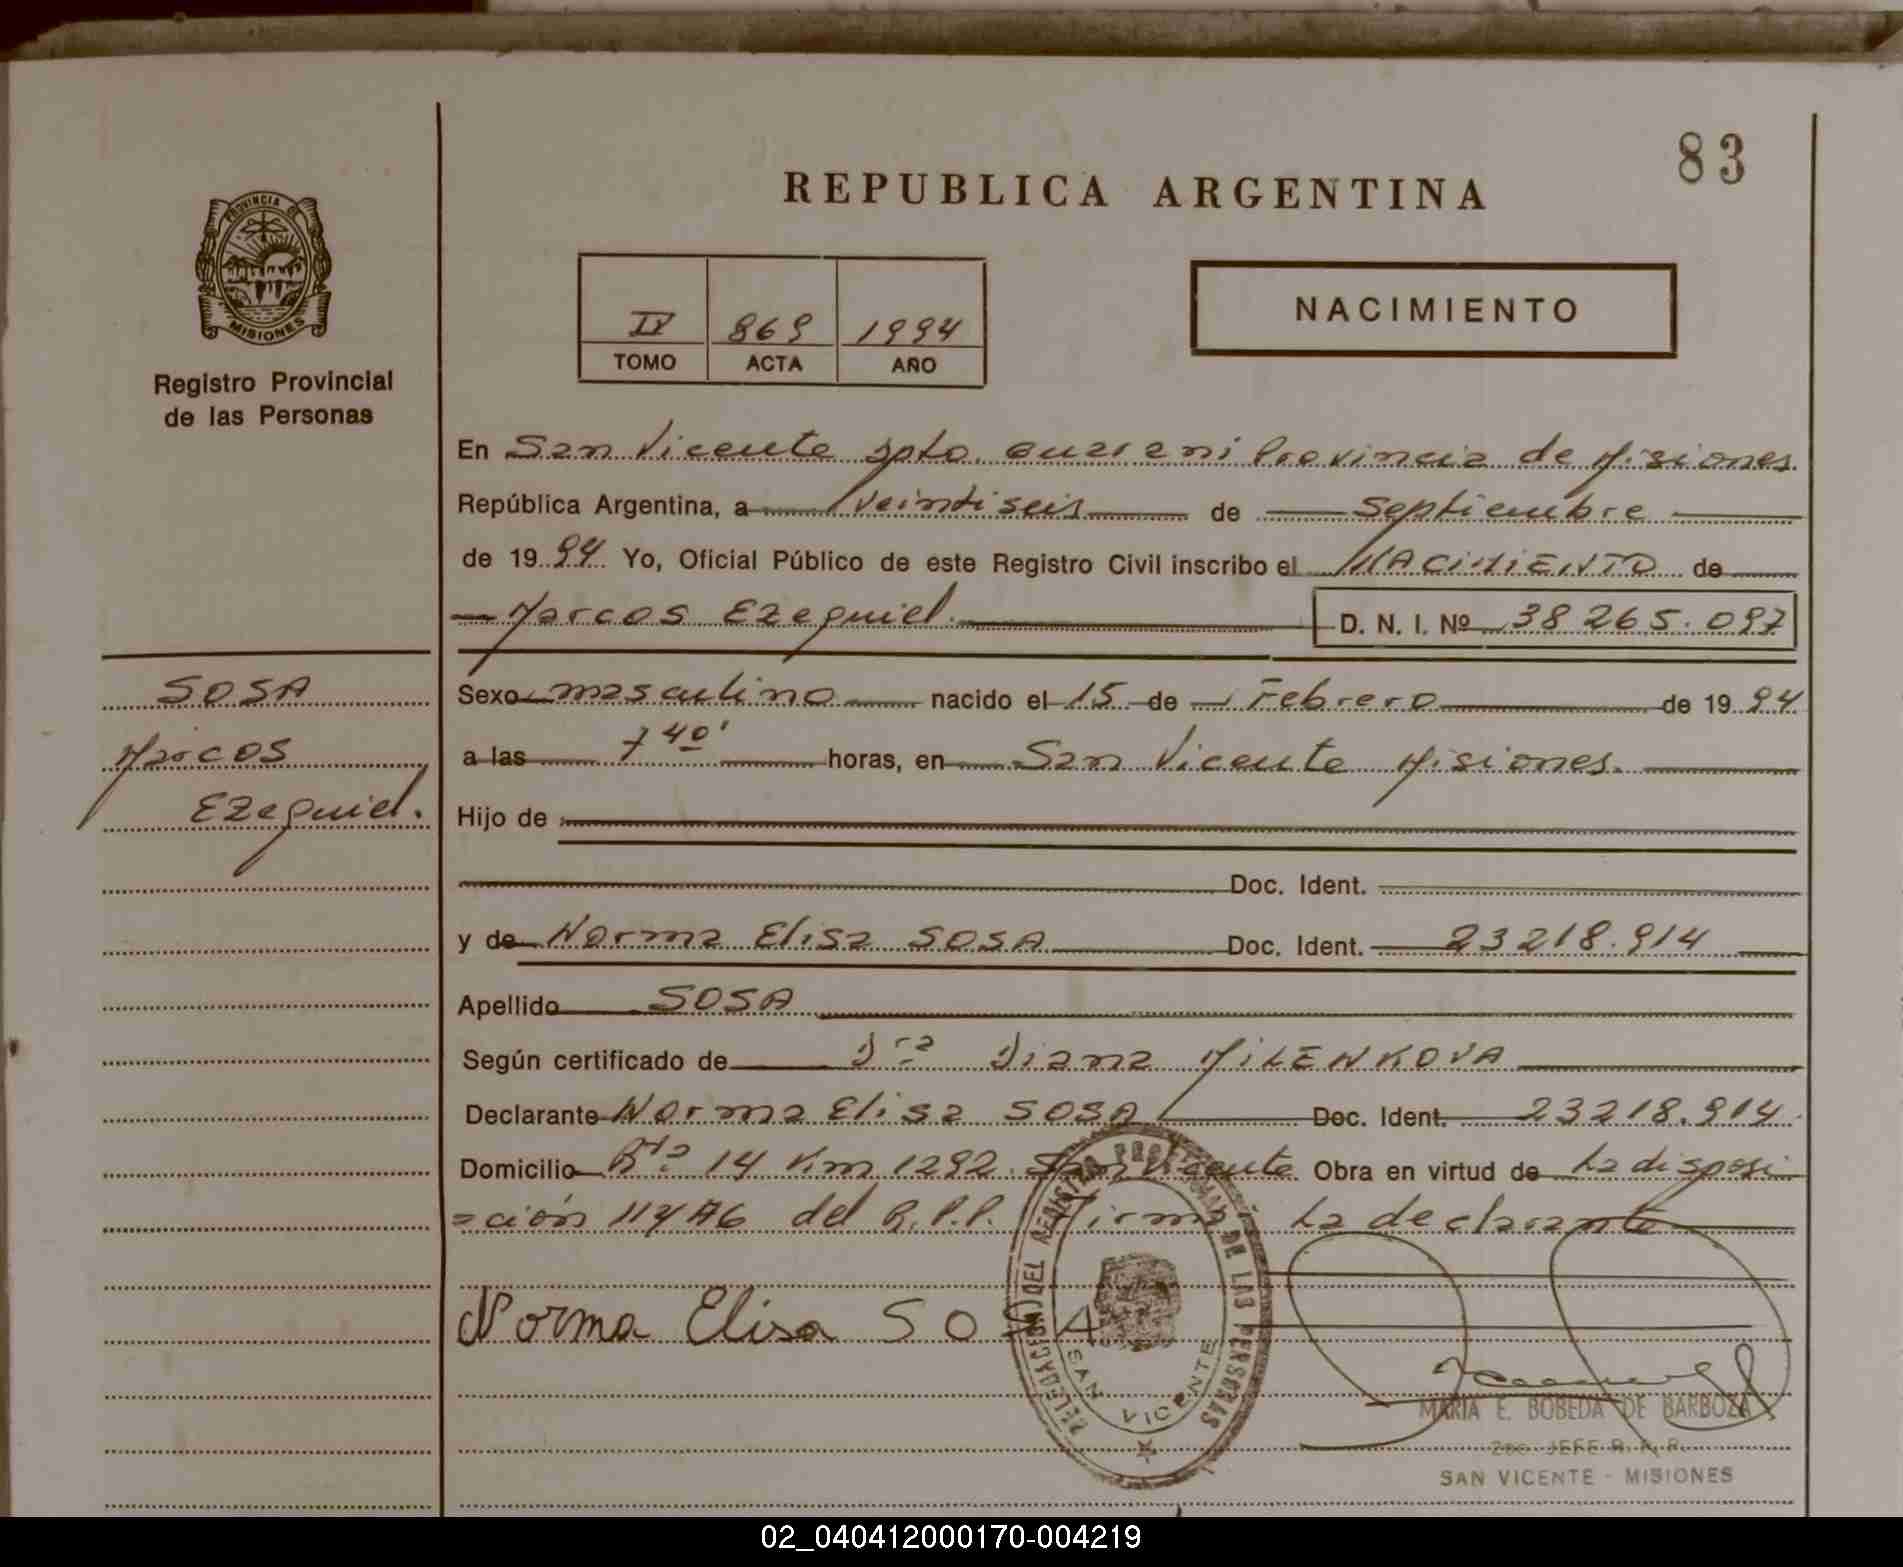 83
REPUBLICA ARGENTINA
PROVINCIA DE
MISIONES
Registro Provincial
de las Personas
IV 869 1994
TOMO ACTA AÑO
NACIMIENTO
En San Vicente Dpto. Guarani Provincia de Misiones
República Argentina, a veintiseis de Septiembre
de 1994 Yo, Oficial Público de este Registro Civil inscribo el NACIMIENTO de
Marcos Ezequiel. D. N. I. Nº 38 265.097
SOSA
Marcos
Ezequiel.
Sexo masculino nacido el 15 de Febrero de 1994
a las 7 40' horas, en San Vicente Misiones.
Hijo de
Doc. Ident.
y de Norma Elisa SOSA Doc. Ident. 23218.914
Apellido SOSA
Según certificado de Dra Diana MILENKOVA
Declarante Norma Elisa SOSA Doc. Ident. 23218.914
Domicilio Rta 14 Km 1292. San Vicente Obra en virtud de La disposi
=ción 117/76 del R.P.P. Firma La declarante
Norma Elisa SOSA
DELEGACION DEL REGISTRO PROVINCIAL DE LAS PERSONAS
SAN VICENTE
MARIA E. BOBEDA DE BARBOZA
JEFE R. P. P.
SAN VICENTE - MISIONES
02_040412000170-004219